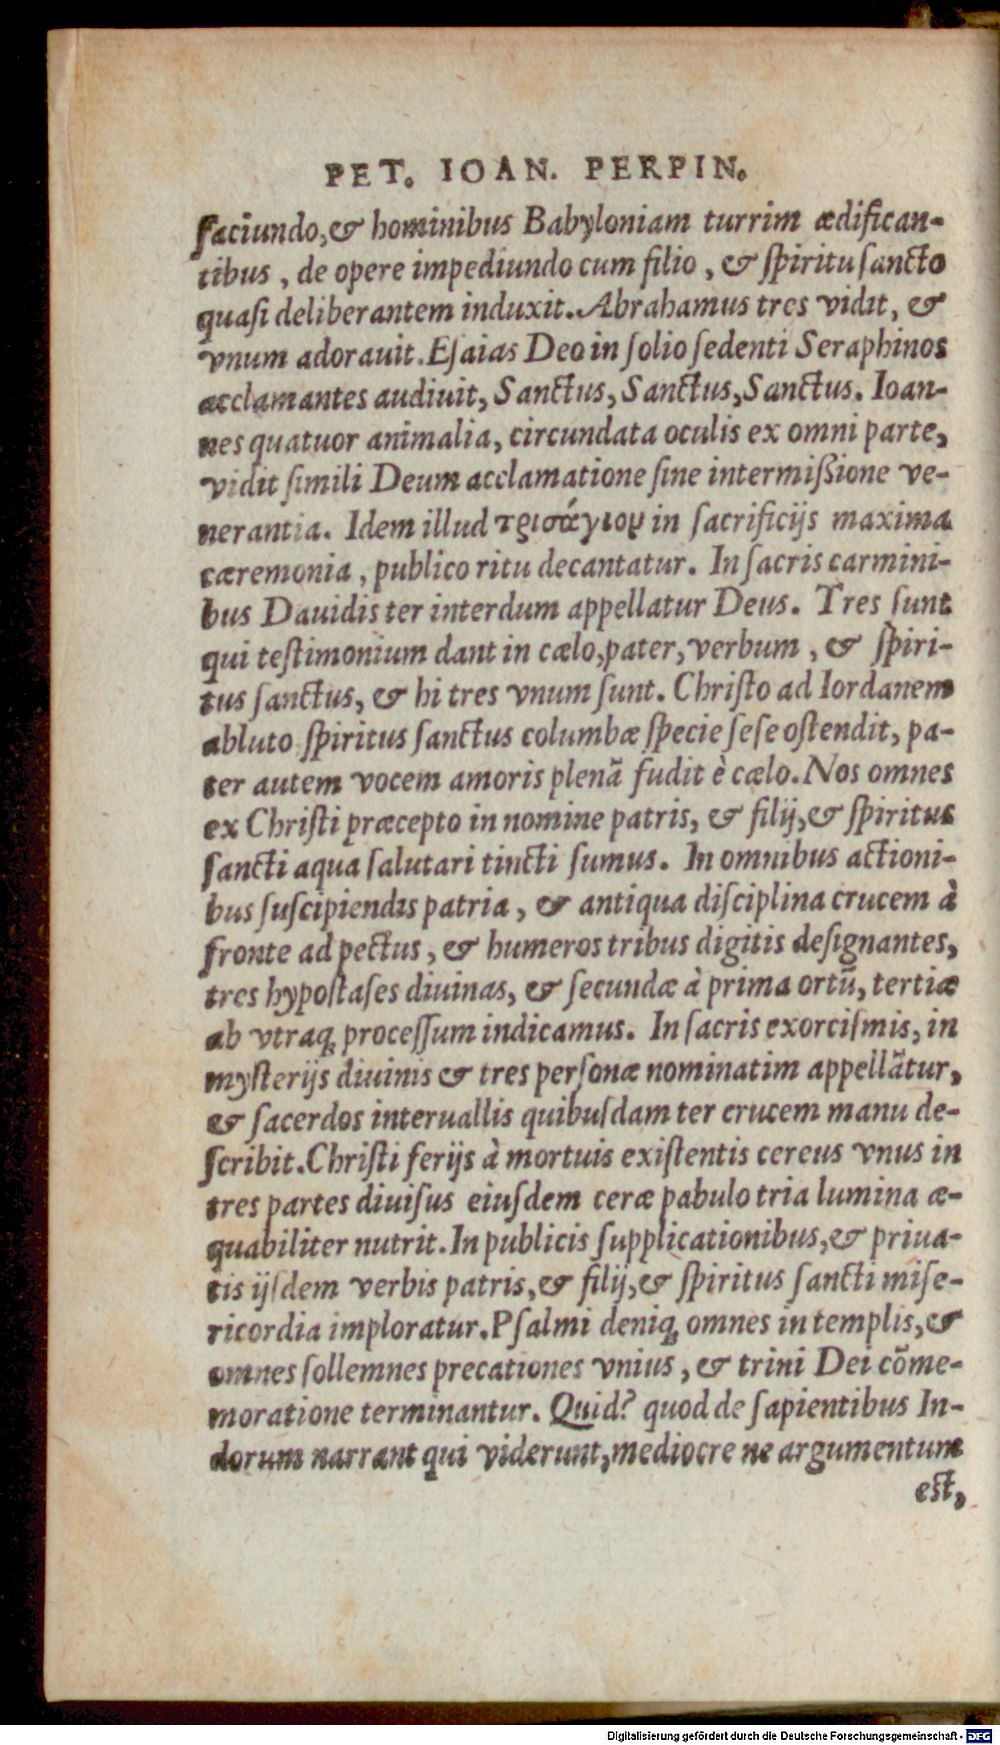 PET. IOAN. PERPIN.
faciundo, & hominibus Babyloniam turrim ædifican-
tibus, de opere impediundo cum filio, & ſpiritu ſancto
quaſi deliberantem induxit. Abrahamus tres vidit, &
vnum adorauit. Eſaias Deo in ſolio ſedenti Seraphinos
acclamantes audiuit, Sanctus, Sanctus, Sanctus. Ioan-
nes quatuor animalia, circundata oculis ex omni parte,
vidit ſimili Deum acclamatione ſine intermißione ve-
nerantia. Idem illud τρισάγιον in ſacrificijs maxima
cæremonia, publico ritu decantatur. In ſacris carmini-
bus Dauidis ter interdum appellatur Deus. Tres ſunt
qui teſtimonium dant in cælo, pater, verbum, & ſpiri-
tus ſanctus, & hi tres vnum ſunt. Chriſto ad Iordanem
abluto ſpiritus ſanctus columbæ ſpecie ſeſe oſtendit, pa-
ter autem vocem amoris plenã fudit è cælo. Nos omnes
ex Chriſti præcepto in nomine patris, & filij, & ſpiritus
ſancti aqua ſalutari tincti ſumus. In omnibus actioni-
bus ſuſcipiendis patria, & antiqua diſciplina crucem à
fronte ad pectus, & humeros tribus digitis deſignantes,
tres hypoſtaſes diuinas, & ſecundæ à prima ortũ, tertiæ
ab vtraq; proceſſum indicamus. In ſacris exorciſmis, in
myſterijs diuinis & tres perſonæ nominatim appellãtur,
& ſacerdos interuallis quibuſdam ter crucem manu de-
ſcribit. Chriſti ferijs à mortuis exiſtentis cereus vnus in
tres partes diuiſus eiuſdem ceræ pabulo tria lumina æ-
quabiliter nutrit. In publicis ſupplicationibus, & priua-
tis ijſdem verbis patris, & filij, & ſpiritus ſancti miſe-
ricordia imploratur. Pſalmi deniq; omnes in templis, &
omnes ſollemnes precationes vnius, & trini Dei cõme-
moratione terminantur. Quid? quod de ſapientibus In-
dorum narrant qui viderunt, mediocre ne argumentum
eſt,
Digitalisierung gefördert durch die Deutsche Forschungsgemeinschaft - DFG